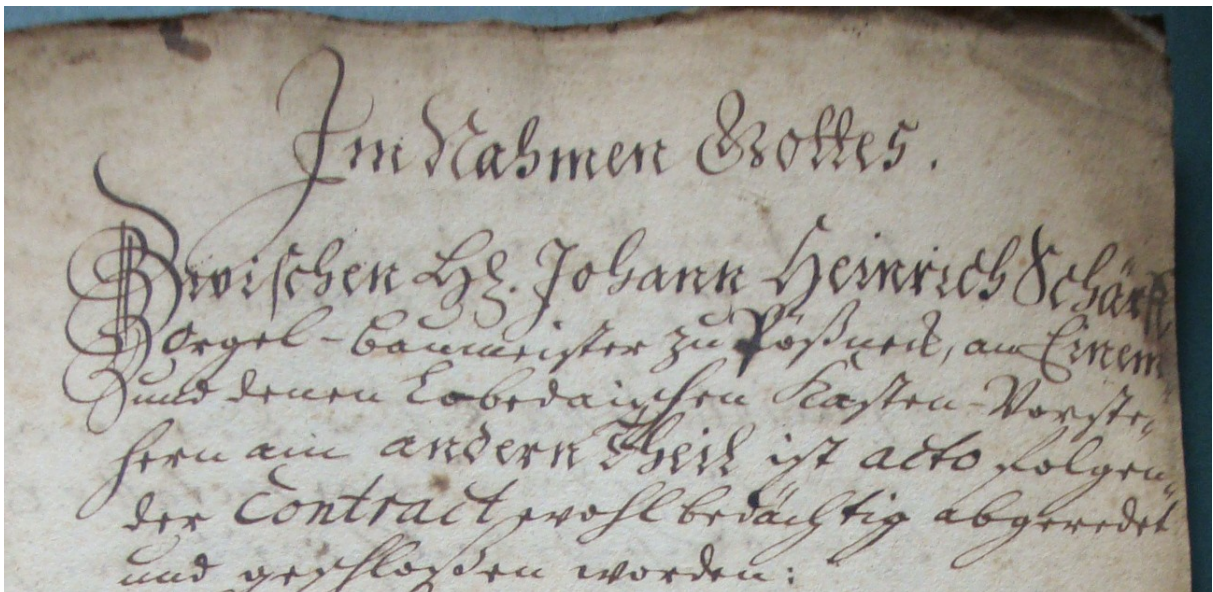 Im Nahmen Gottes.
Zwischen Hr. Johann Heinrich Schärff,
Orgel-baumeister zu Pößneck, am Einem
und denen Lobedaischen Kasten-Vorste,,
hern am andern Theil ist acto folgen,,
der Contract wohlbedächtig abgeredet
und geschloßen worden: